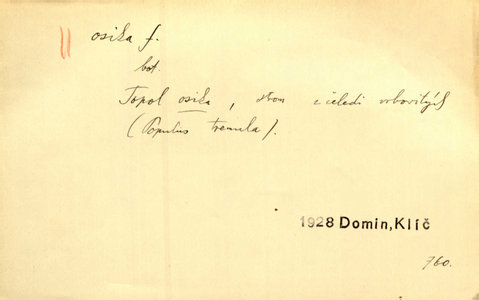 osika f.
bot.
Topol osika, strom z čeledi vrbovitých
(Populus tremula).
1928 Domin, Klíč
760.